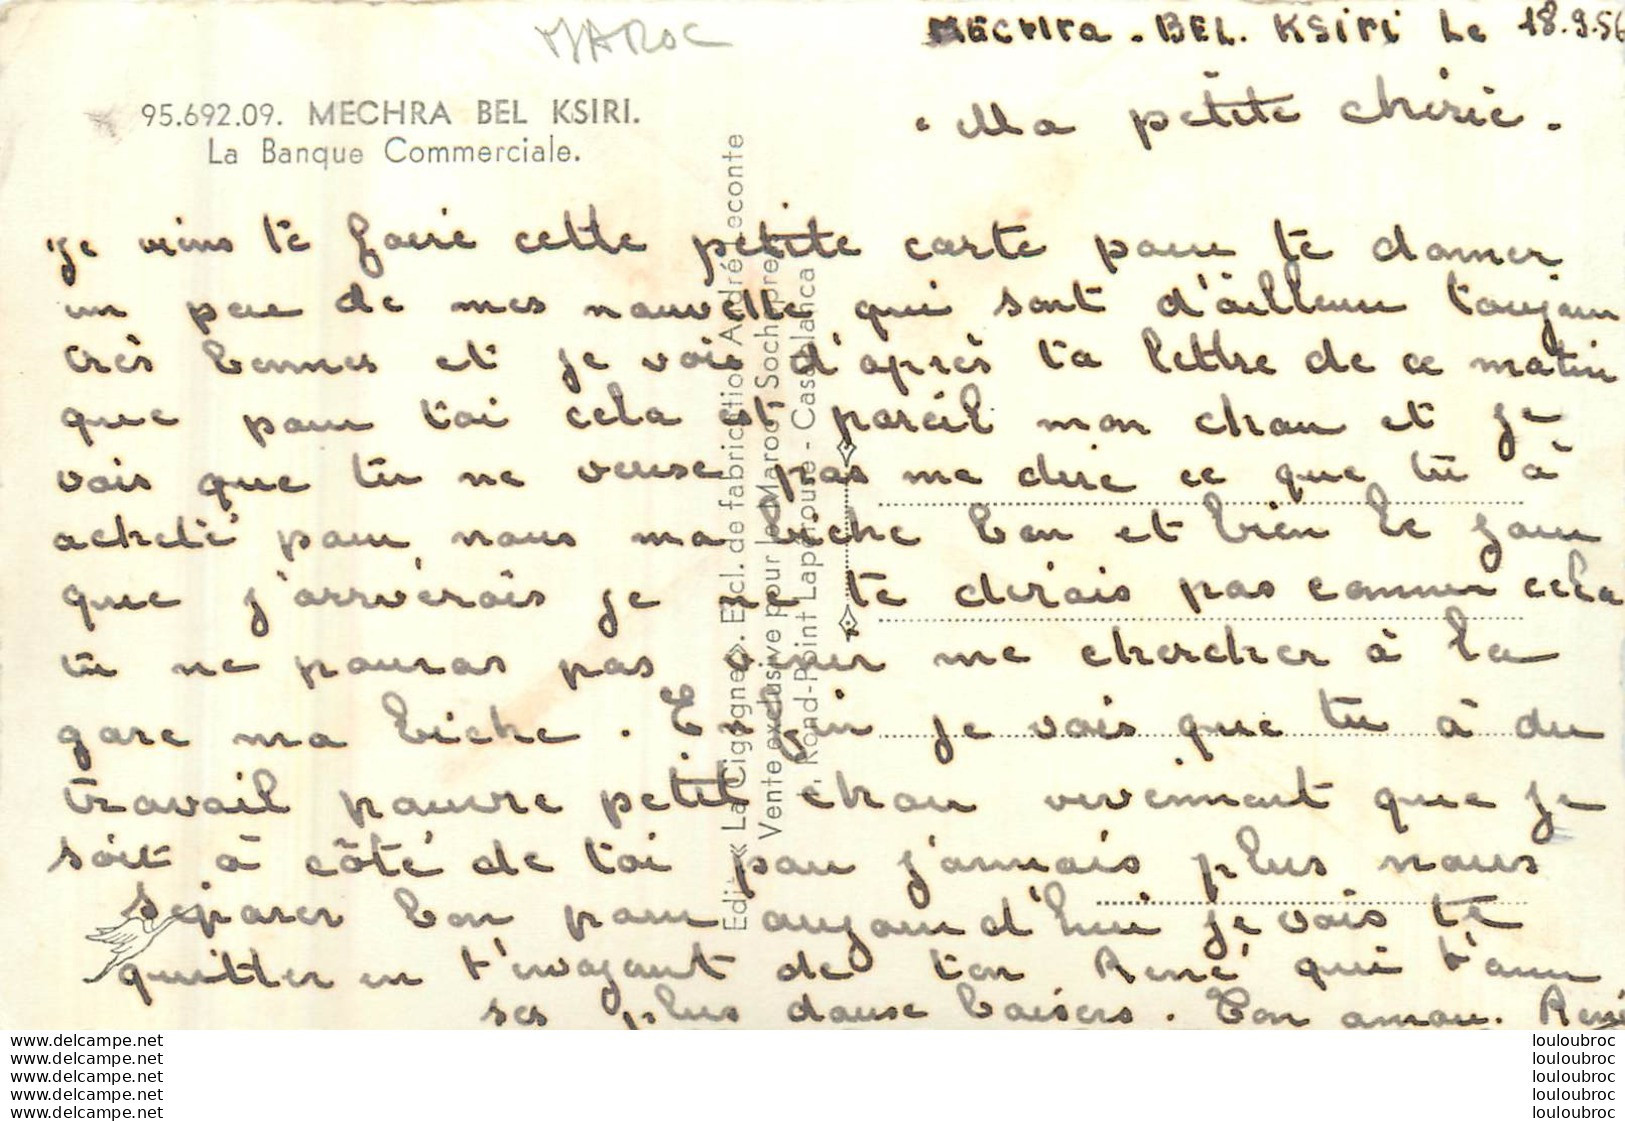 MAROC
MECHra - BEL. KSIRI Le 18.9.56
95.692.09. MECHRA BEL KSIRI.
La Banque Commerciale.
Ma petite cherie.
Je viens te faire cette petite carte pour te donner
un peu de mes nouvelle qui sont d'ailleur toujour
très bonnes et je vois d'après ta lettre de ce matin
que pour toi cela est pareil mon chou et je
vois que tu ne veuse pas me dire ce que tu à
acheté pour nous ma biche bon et bien le jour
que j'arriverais je ne te dirais pas comme cela
tu ne pouras pas venir me chercher à la
gare ma biche. Enfin je vois que tu à du
travail pauvre petit chou vivennent que je
soit à côté de toi pour j'amais plus nous
séparer bon pour aujourd'hui je vois te
quitter en t'envoyant de ton René qui t'aime
ses plus douse baisers. Ton amour. René
Edit. « La Cigogne ». Excl. de fabrication André Leconte
Vente exclusive pour le Maroc Sochepress
Rond-Point Lapérouse - Casablanca
louloubroc
louloubroc
louloubroc
louloubroc
louloubroc
louloubroc
louloubroc
louloubroc
louloubroc
louloubroc